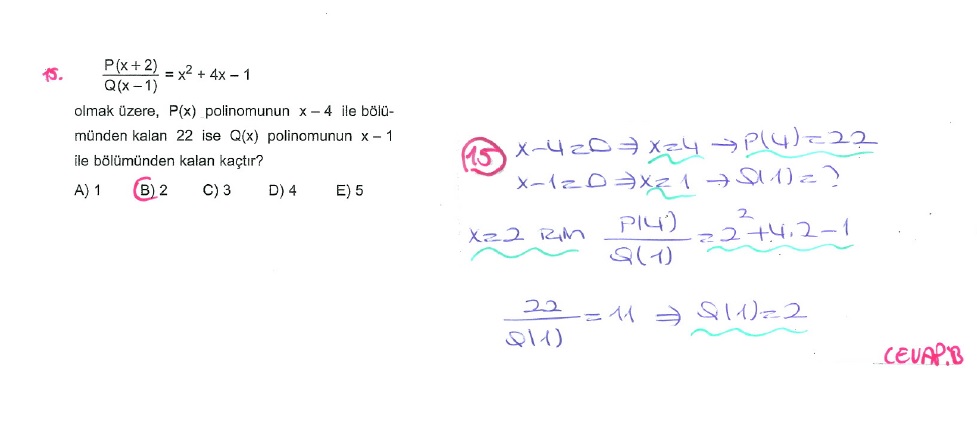 15.
P(x + 2)
Q(x – 1) = x² + 4x – 1
olmak üzere, P(x) polinomunun x – 4 ile bölü-
münden kalan 22 ise Q(x) polinomunun x – 1
ile bölümünden kalan kaçtır?
A) 1 B) 2 C) 3 D) 4 E) 5
15 x-4=0 ⇒ x=4 → P(4)=22
x-1=0 ⇒ x=1 → Q(1)=?
x=2 için P(4)
Q(1) = 2²+4.2-1
22
Q(1) = 11 ⇒ Q(1)=2
CEVAP:B